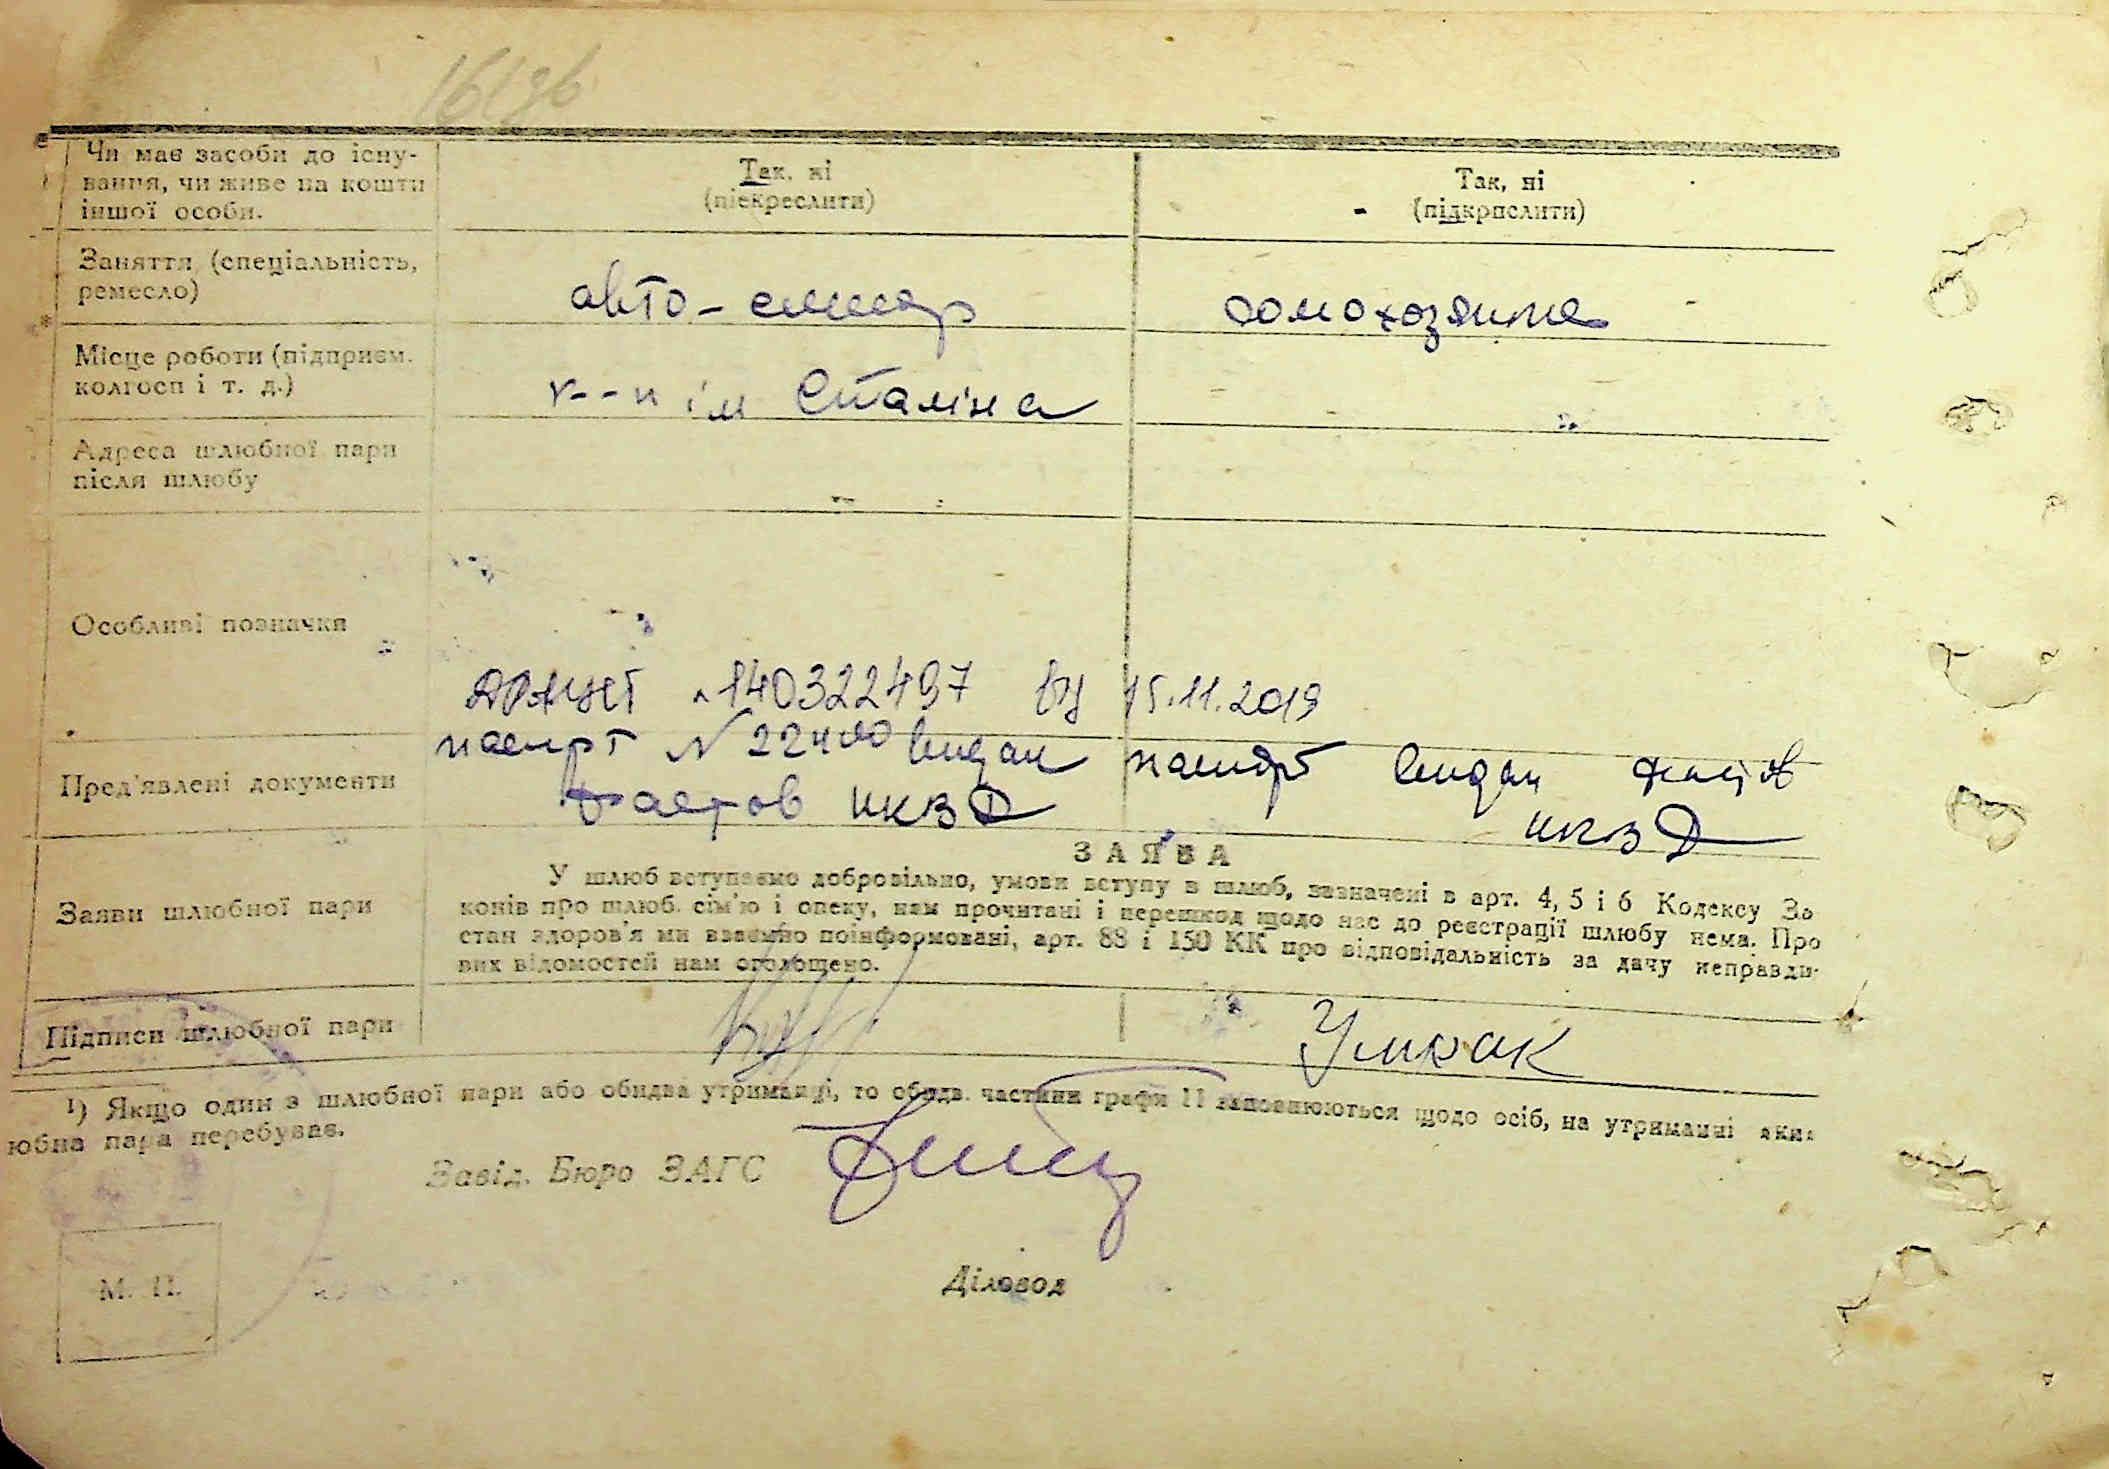 Чи має засоби до існу-
вання, чи живе на кошти
іншої особи.
Так, ні
(піекреслити)
Так, ні
(підкрпслити)
Заняття (спеціальність,
ремесло)
авто-слюсар
домохозяйка
Місце роботи (підприєм.
колгосп і т. д.)
к--п ім Сталіна
Адреса шлюбної пари
після шлюбу
Особливі позначки
140322497 від 15.11.2019
Пред'явлені документи
паспорт N 22400 видан
Фастов НКВД
паспорт видан Фастів
НКВД
Заяви шлюбної пари
ЗАЯВА
У шлюб вступаємо добровільно, умови вступу в шлюб, зазначені в арт. 4, 5 і 6 Кодексу За
конів про шлюб. сім'ю і опеку, нам прочитані і перешкод щодо нас до реєстрації шлюбу нема. Про
стан здоров'я ми взаємно поінформовані, арт. 88 і 150 КК про відповідальність за дачу неправди-
вих відомостей нам оголошено.
Підписи шлюбної пари
¹) Якщо один з шлюбної пари або обидва утриманці, то обидв. частини графи 11 заповнюються щодо осіб, на утриманні яких
юбна пара перебуває.
Завід. Бюро ЗАГС
Діловод
М. П.